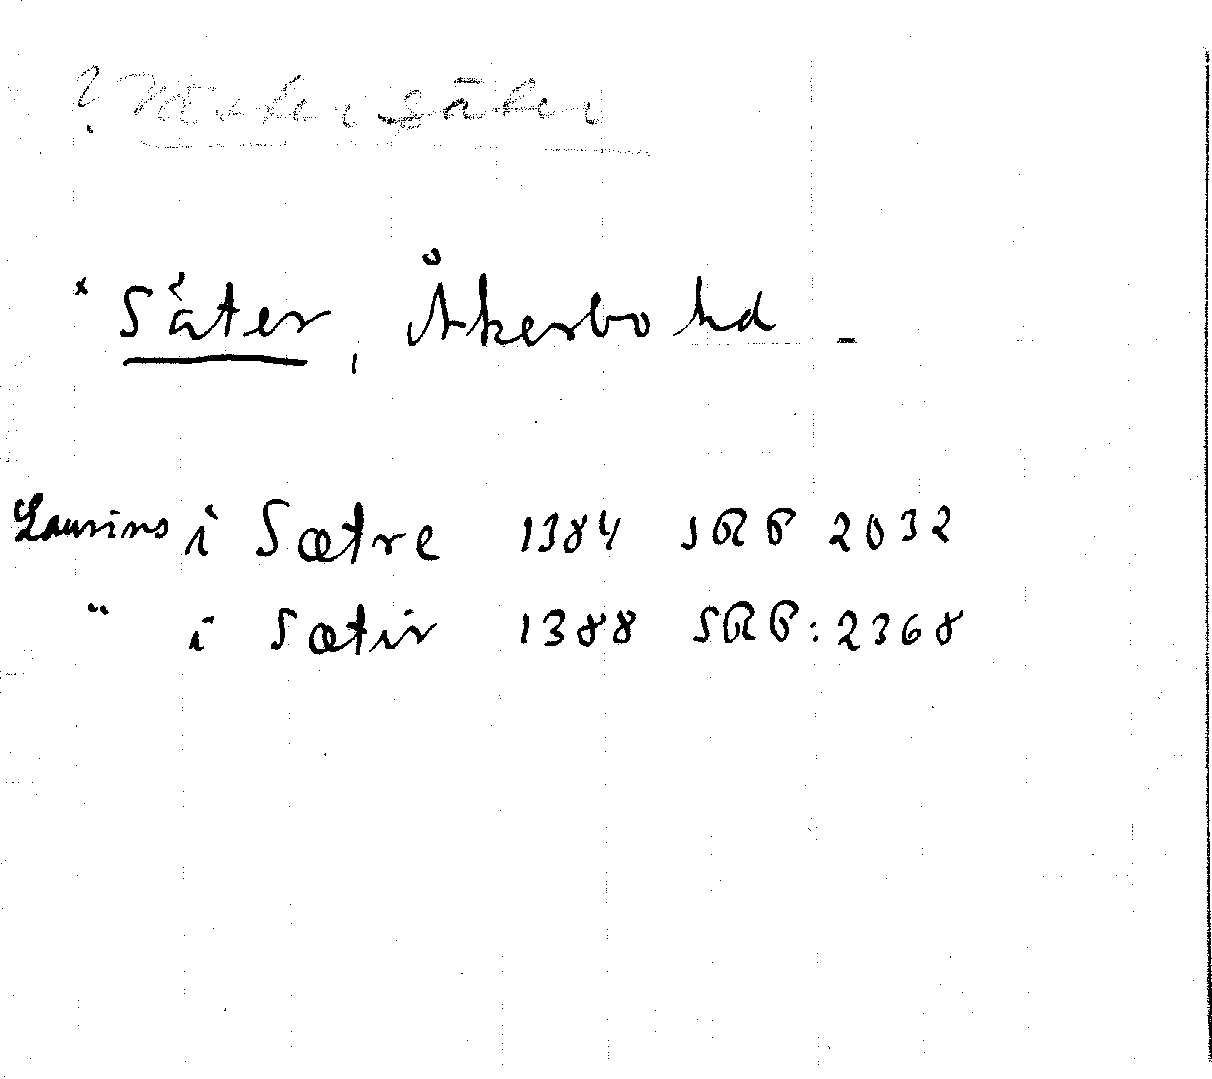 ? Västersäter
x Säter, Åkerbo hd -
Laurins i Sætre 1384 SRP 2032
" i Sætir 1388 SRP: 2368